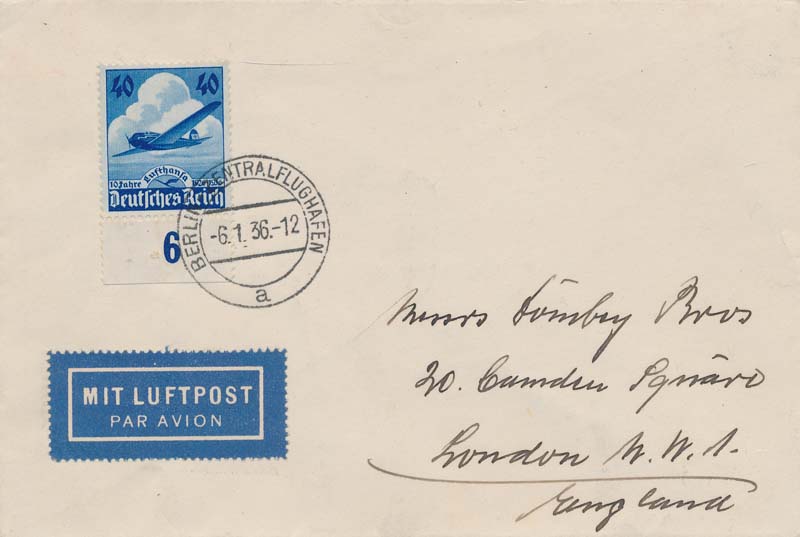 40 40
10 Jahre Lufthansa
Deutsches Reich
6
BERLIN CENTRALFLUGHAFEN
-6.1.36.-12
a
MIT LUFTPOST
PAR AVION
Messrs Dömbey Bros
20. Camden Square
London N.W.1.
England